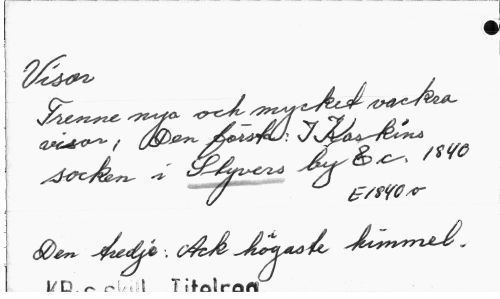 Visor
Trenne nya och mycket vackra
visor, Den första: I Kaskins
socken i Slyvers by &c. 1840
E1840v
Den tredje: Ack högaste himmel.
KB:s skill. Titelreg